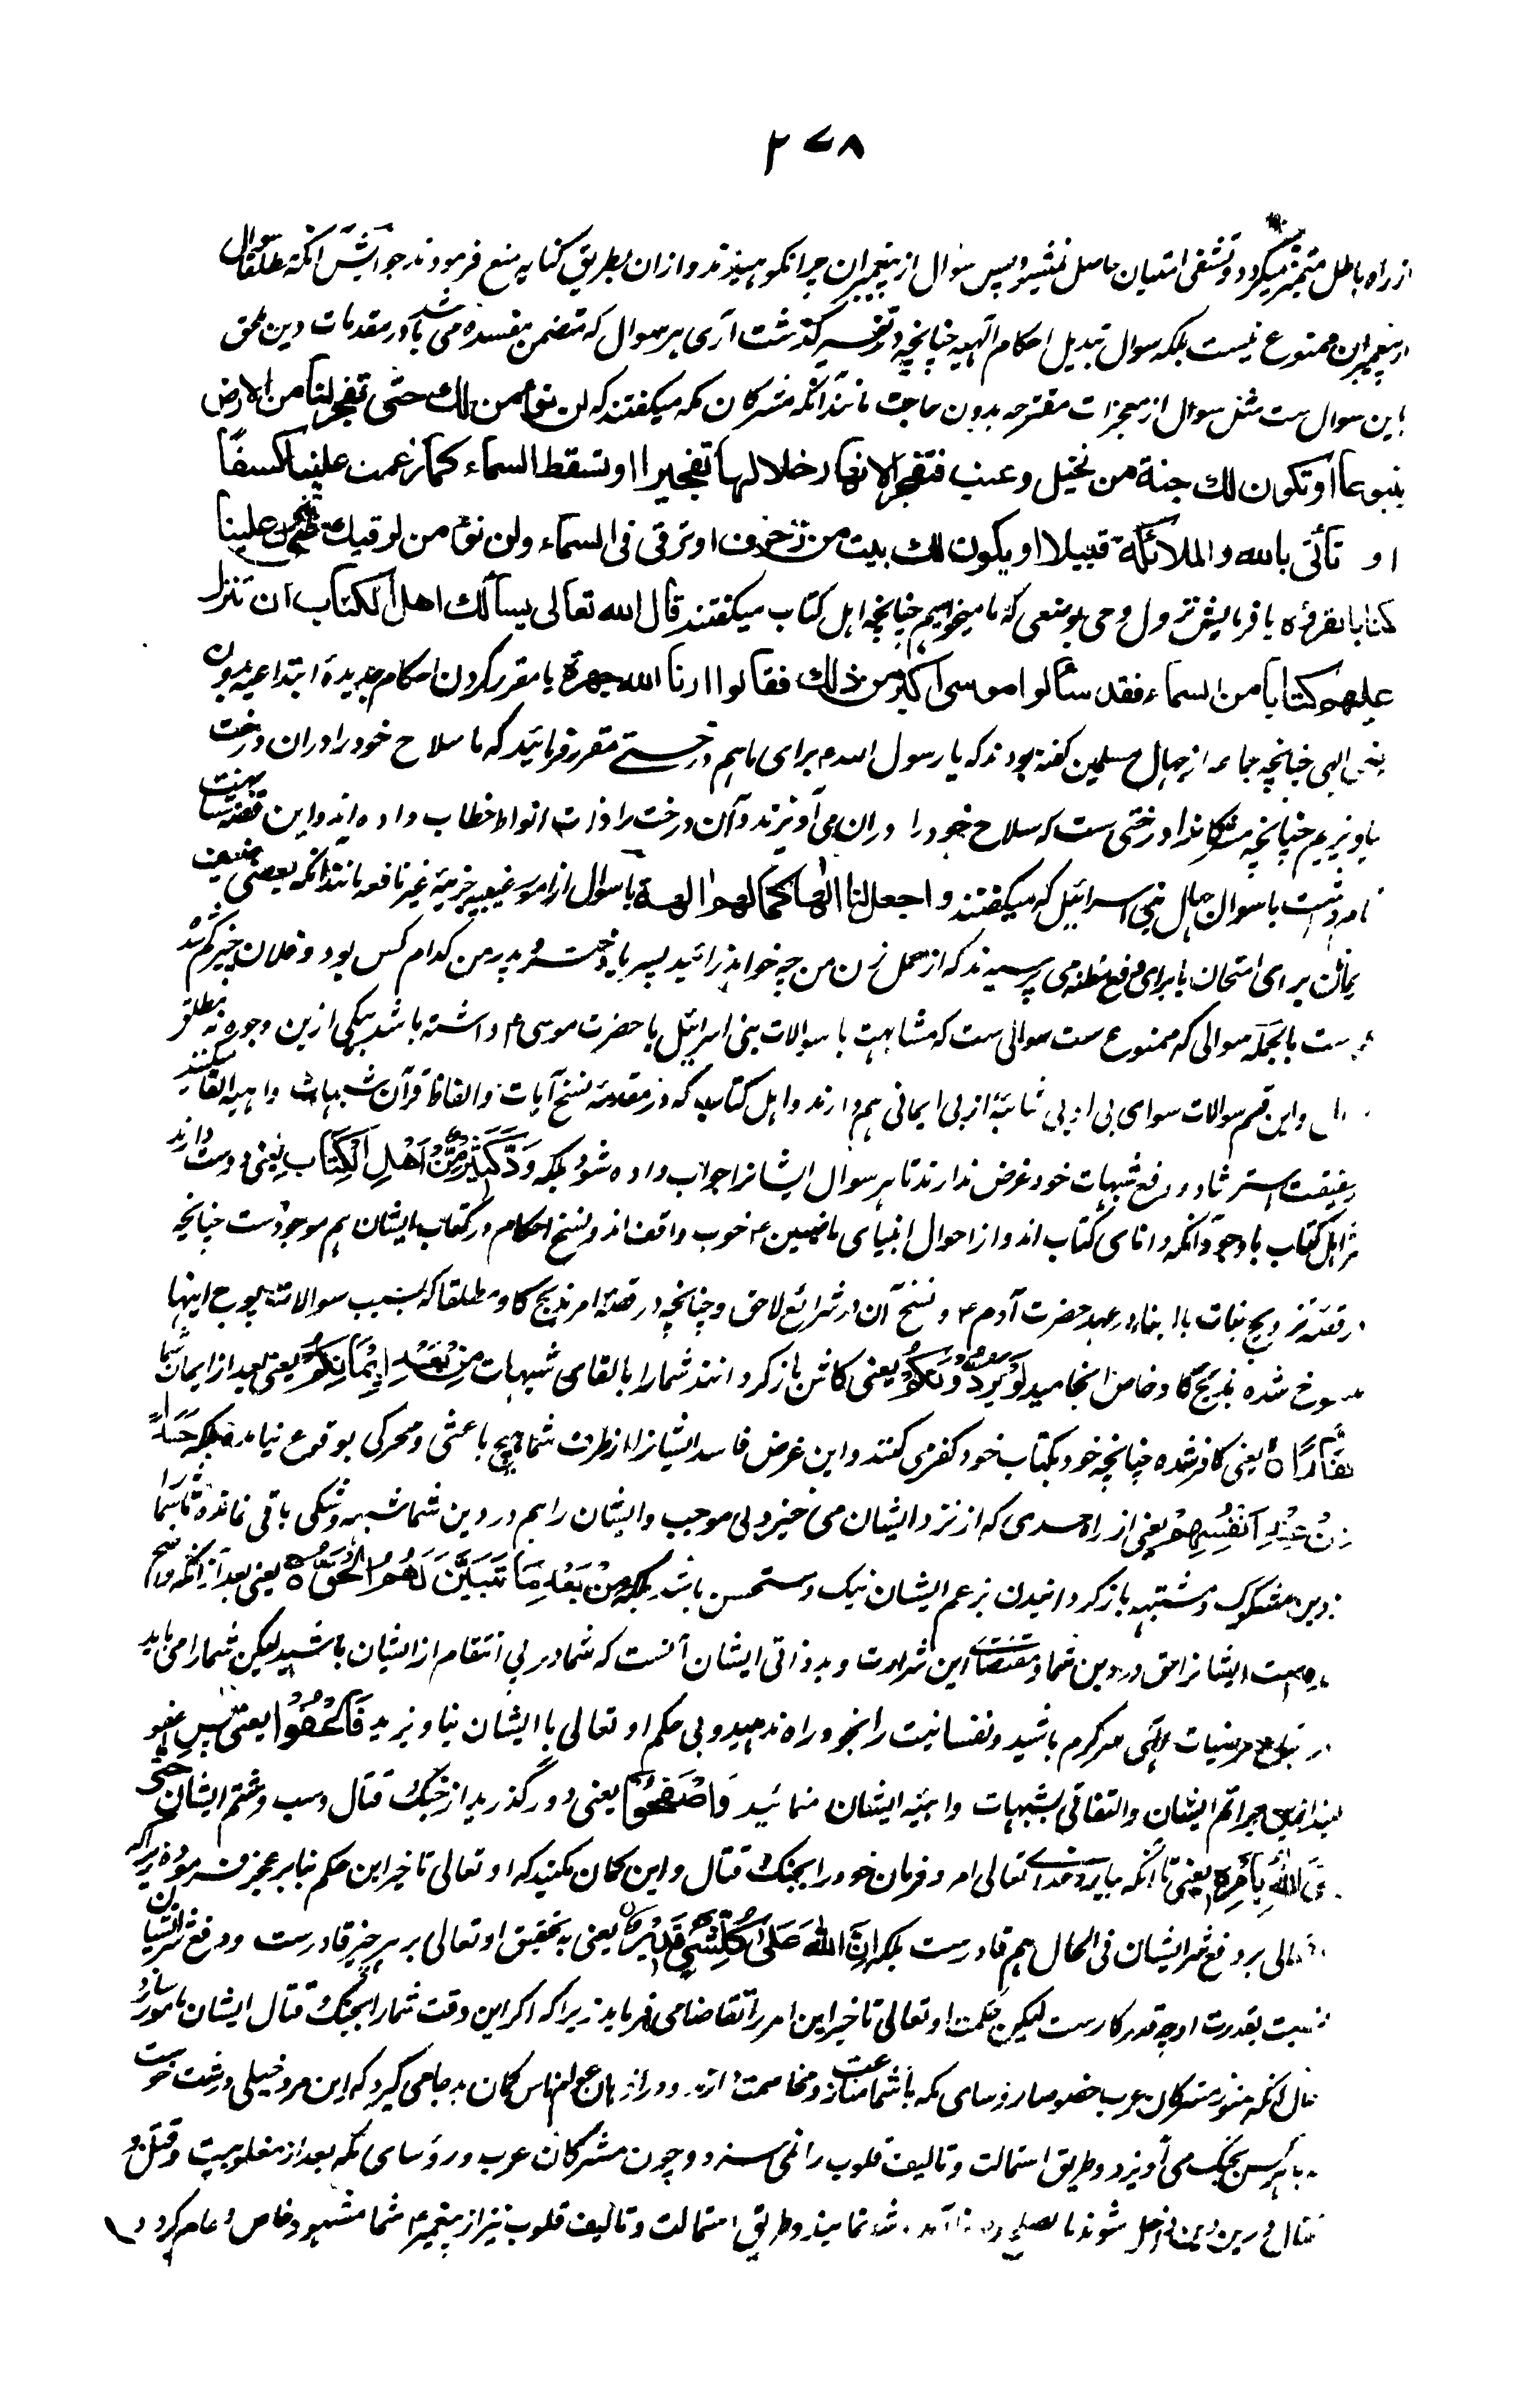 ۲۷۸
از راه باطل متمیز میگردد و تشفی امتیان حاصل نمیشود پس سوال از پیغمبران چرا نکوهیدند و ازان بطریق کنایه منع فرمودند جوابش آنکه مطلقا سوال
از پیغمبران ممنوع نیست بلکه سوال تبدیل احکام الهیه چنانچه در تفسیر گذشت آری هر سوال که متضمن مفسده می باشد در مقدمات دین ملحق
باین سوال ست مثل سوال از معجزات مقترحه بدون حاجت مانند آنکه مشرکان مکه میگفتند که لن نؤمن لك حتی تفجر لنا من الارض
ینبوعا او تکون لك جنة من نخیل وعنب فتفجر الانهار خلالها تفجیرا او تسقط السماء کما زعمت علینا کسفا
او تأتی بالله والملائکة قبیلا او یکون لك بیت من زخرف او ترقی فی السماء ولن نؤمن لرقیك حتی تنزل علینا
کتابا نقرؤه یا فرمایش نزول وحی بوضعی که ما میخواهیم چنانچه اهل کتاب میگفتند قال الله تعالی یسألك اهل الکتاب ان تنزل
علیهم کتابا من السماء فقد سألوا موسی اکبر من ذلك فقالوا ارنا الله جهرة یا مقرر کردن احکام جدیدهٔ ابتداعیه بدون
چنانچه جماعه از جهال مسلمین گفته بودند که یا رسول الله برای ما هم درختے مقرر فرمائید که ما سلاح خود را دران درخت
بیاویزیم چنانچه مشرکانرا درختی ست که سلاح خود را دران می آویزند و آن درخت را ذات انواط خطاب داده اند و این قصه مشابهت
با سوال جهال بنی اسرائیل که میگفتند و اجعل لنا الها کما لهم الهة یا سوال از امور غیبیه جزئیهٔ غیر نافعه مانند آنکه بعضی ضعیف
برای امتحان یا برای رفع مظنه می پرسیدند که از حمل زن من چه خواهد زائید پسر یا دختر و پدر من کدام کس بود و فلان چیز گم شده
ست بالجمله سوالی که ممنوع ست سوالی ست که مشابهت با سوالات بنی اسرائیل با حضرت موسی ع داشته باشد بیکی ازین وجوه نه مطلق
و این قسم سوالات سوای بی ادبی شائبهٔ از بی ایمانی هم دارند و اهل کتاب که در مقدمهٔ نسخ آیات و الفاظ قرآن شبهات واهیه القا میکنند
استرشاد و رفع شبهات خود غرض ندارند تا هر سوال ایشانرا جواب داده شود بلکه وَدَّ کَثِیْرٌ مِّنْ اَهْلِ الْکِتَابِ یعنی دوست دارند
اهل کتاب باوجود آنکه دانای کتاب اند و از احوال انبیای ماضیین ع خوب واقف اند و نسخ احکام در کتاب ایشان هم موجودست چنانچه
در قصهٔ تزویج بنات با ابناء در عهد حضرت آدم ع و نسخ آن در شرائع لاحق و چنانچه در قصهٔ امر بذبح گاو مطلقا که بسبب سوالات پوچ اینها
شده بذبح گاو خاص انجامید لَوْ یَرُدُّوْنَکُمْ یعنی کاش بازگردانند شما را بالقای شبهات مِنْ بَعْدِ اِیْمَانِکُمْ یعنی بعد از ایمان شما
کُفَّارًا یعنی کافر شده چنانچه خود بکتاب خود کفر می کنند و این غرض فاسد ایشانرا از طرف شما هیچ باعثی و محرکی بوقوع نیامده بلکه حَسَدًا
مِنْ عِنْدِ اَنْفُسِهِمْ یعنی از راه حسدی که از نزد ایشان می خیزد بی موجب و ایشان را هم در دین شما شبهه و شکی باقی نمانده تا شما را
مشکوک و مشتبه بازگردانیدن بزعم ایشان نیک و مستحسن باشد بلکه مِنْ بَعْدِ مَا تَبَیَّنَ لَهُمُ الْحَقُّ یعنی بعد از آنکه واضح
ایشانرا حق در دین شما و مقتضاے این شرارت و بدذاتی ایشان آنست که شما در پی انتقام از ایشان باشید لیکن شما را می باید
مرضیات الهی سرگرم باشید و نفسانیت را بخود راه ندهید و بی حکم او تعالی با ایشان نیاویزید فَاعْفُوْا یعنی پس عفو
جرائم ایشان والتفاتی بشبهات واهیهٔ ایشان منمائید وَاصْفَحُوْا یعنی درگذرید از جنگ و قتال و سب و شتم ایشان حَتّٰی
یَأْتِیَ اللهُ بِاَمْرِهٖ یعنی تا آنکه بیارد خداے تعالی امر و فرمان خود را بجنگ و قتال و این گمان مکنید که او تعالی تاخیر این حکم بنابر عجز فرموده زیراکه
تعالی بر دفع شر ایشان فی الحال هم قادرست بلکه اِنَّ اللهَ عَلٰی کُلِّ شَیْءٍ قَدِیْرٌ یعنی بتحقیق او تعالی بر هر چیز قادرست و دفع شر ایشان
نسبت بقدرت او چه قدر کارست لیکن حکمت او تعالی تاخیر این امر را تقاضا می فرماید زیراکه اگر این وقت شما را بجنگ و قتال ایشان مامور سازد
حال آنکه هنوز مشرکان عرب خصوصا روسای مکه با شما منازعت و مخاصمت دارند در اذهان عوام الناس گمان بد جا می گیرد که این مرد خیلی درشت خوست
با هر کس بجنگ می آویزد و طریق استمالت و تالیف قلوب را نمی و چون مشرکان عرب و رؤسای مکه بعد از مغلوبیت و قتل و
قتال در دین داخل شوند یا بصلح نمایند و طریق استمالت و تالیف قلوب نیز از پیغمبر شما مشهود خاص و عام گردد